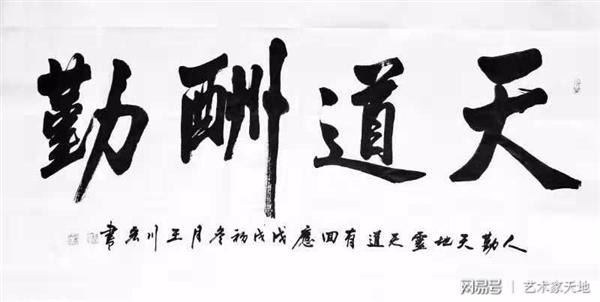 天道酬勤
人勤天地靈天道有回應戊戌初冬月王川書
网易号 | 艺术家天地